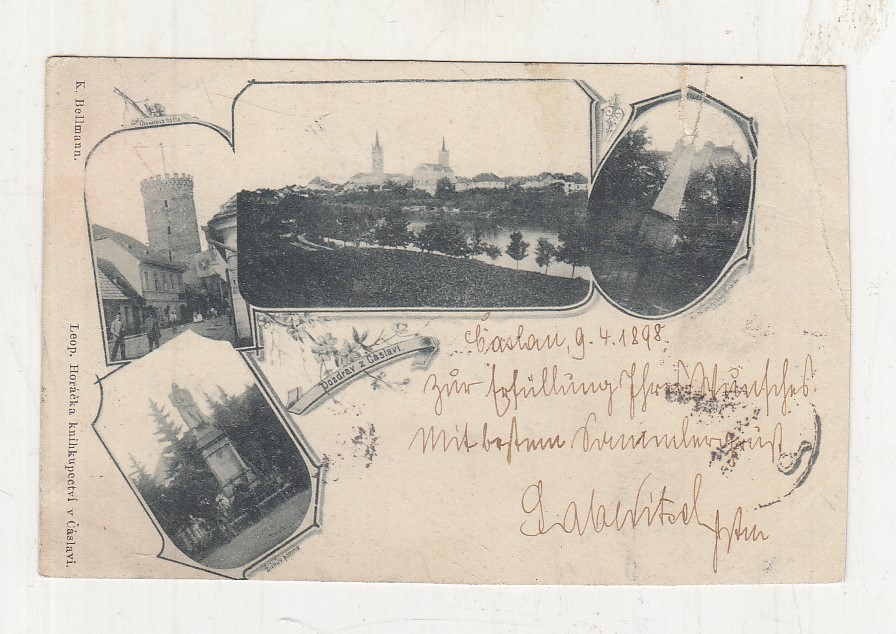 K. Bellmann.
Leop. Horáčka knihkupectví v Čáslavi.
Pozdrav z Čáslavi
Žižkův pomník
Časlau, 9. 4. 1898.
Zur Erfüllung Ihres Wunsches.
Mit bestem Sammlergruß